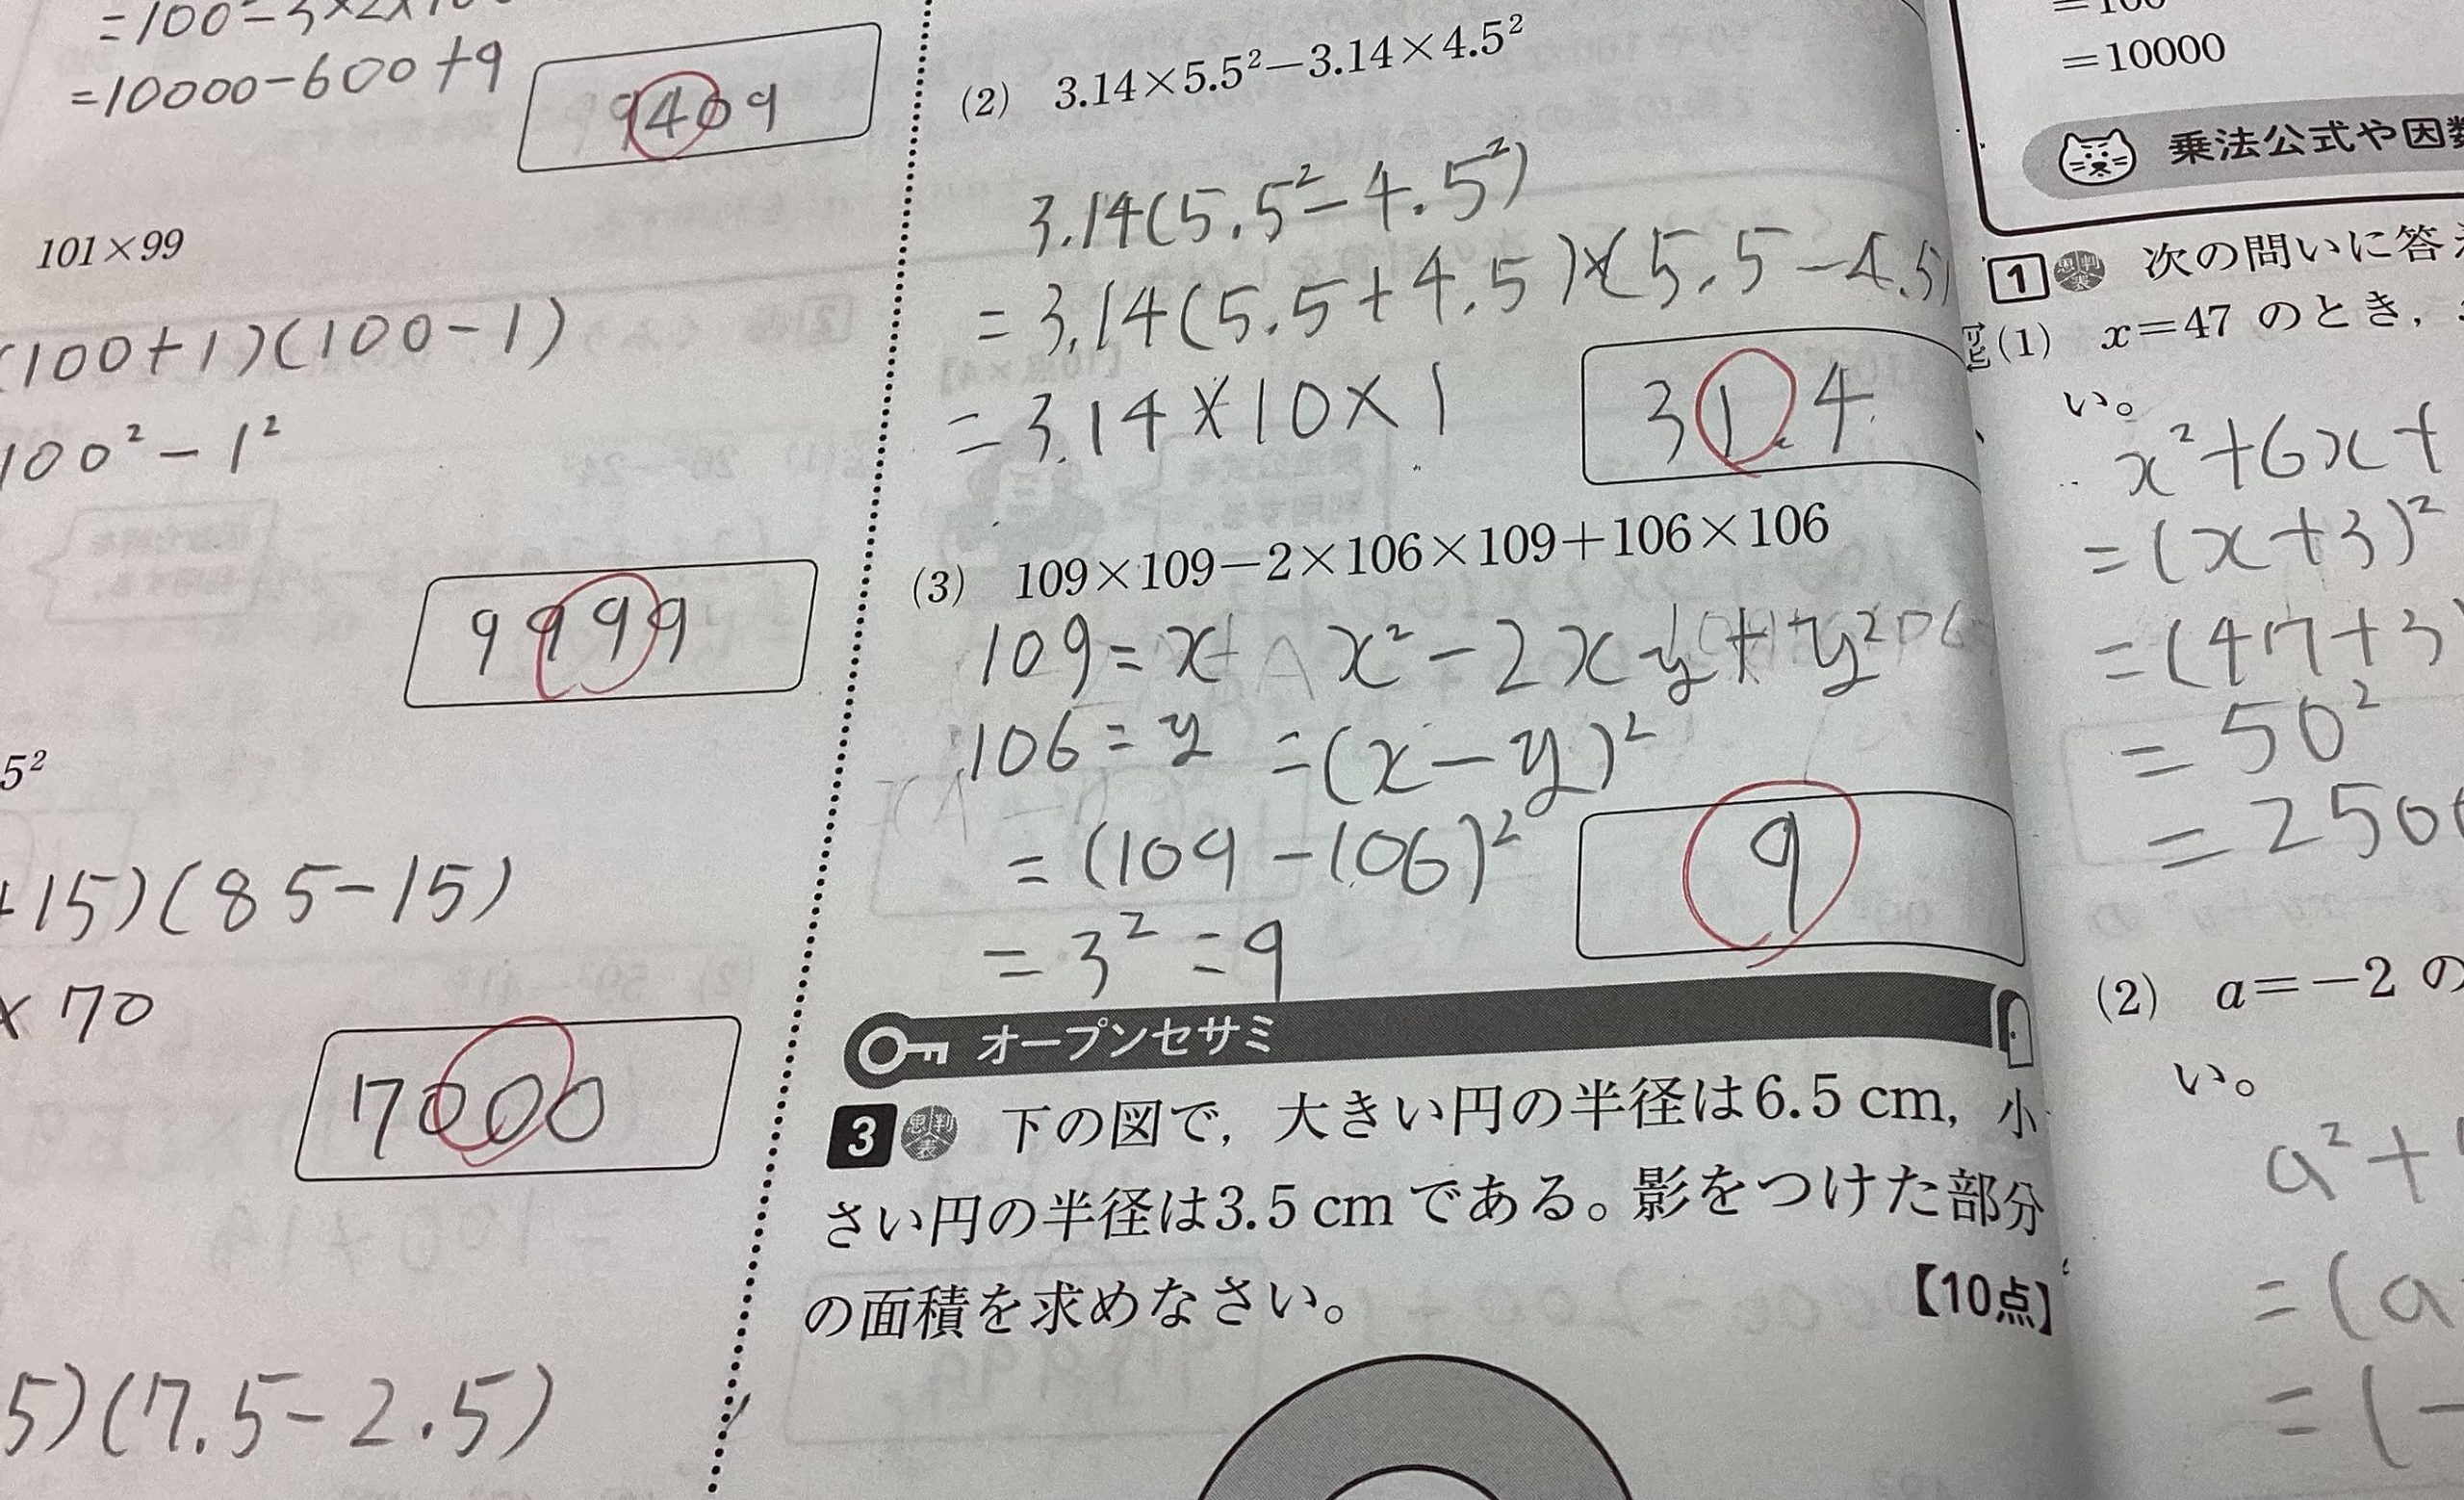 =10000-600+9
9409
101×99
(100+1)(100-1)
100²-1²
9999
5²
+15)(85-15)
×70
7000
5)(7.5-2.5)
(2) 3.14×5.5²-3.14×4.5²
3.14(5.5²-4.5²)
=3.14(5.5+4.5)×(5.5-4.5)
=3.14×10×1
31.4
(3) 109×109-2×106×109+106×106
109=x x²-2xy+y²
106=y =(x-y)²
=(109-106)²
=3²=9
9
オープンセサミ
3 思判表 下の図で,大きい円の半径は6.5cm,小
さい円の半径は3.5cmである。影をつけた部分
の面積を求めなさい。【10点】
=10000
乗法公式や因数
1 思判表 次の問いに答え
(1) x=47のとき,
い。
x²+6x+
=(x+3)²
=(47+3)
=50²
=2500
(2) a=-2の
い。
a²+
=(a
=(-